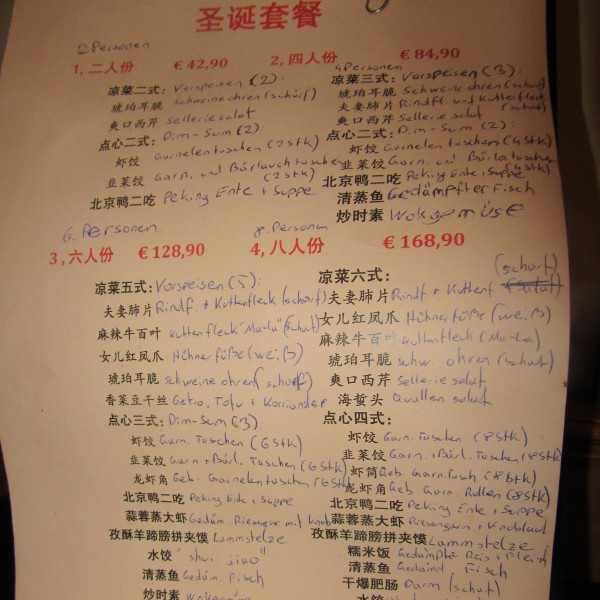 圣诞套餐
2 Personen
1, 二人份 € 42,90
凉菜二式: Vorspeisen (2):
琥珀耳脆 schweine ohren (scharf)
爽口西芹 Selleriesalat
点心二式: Dim-Sum (2):
虾饺 Garnelentaschen (2 Stk)
韭菜饺 Garn. und Bärlauchtaschen (2 Stk)
北京鸭二吃 Peking Ente + Suppe
4 Personen
2, 四人份 € 84,90
凉菜三式: Vorspeisen (3):
琥珀耳脆 Schweine ohren (scharf)
夫妻肺片 Rindfl. und Kuttenfleck (scharf)
爽口西芹 Sellerie salat
点心二式: Dim-Sum (2):
虾饺 Garnelentaschen (4 Stk)
韭菜饺 Garn. und Bärlataschen (4 Stk)
北京鸭二吃 Peking Ente + Suppe
清蒸鱼 Gedämpfter Fisch
炒时素 Wokgemüse
6. Personen
3, 六人份 € 128,90
凉菜五式: Vorspeisen (5):
夫妻肺片 Rindf. + Kuttenfleck (scharf)
麻辣牛百叶 Kuttenfleck "Ma-La" (scharf)
女儿红凤爪 Hühnerfüße (weiß)
琥珀耳脆 schweine ohren (scharf)
香菜豆干丝 Getro. Tofu + Koriander
点心三式: Dim-Sum (3)
虾饺 Garn. Taschen (6 Stk)
韭菜饺 Garn + Bärl. Taschen (6 Stk)
龙虾角 Geb. Garnelentaschen (6 Stk)
北京鸭二吃 Peking Ente + Suppe
蒜蓉蒸大虾 Gedäm. Riesengar mit Knob
孜酥羊蹄膀拼夹馍 Lammstelze
水饺 "shui jiao"
清蒸鱼 Gedäm. Fisch
炒时素
8. Personen
4, 八人份 € 168,90
凉菜六式: (scharf)
夫妻肺片 Rindf + Kuttenf
女儿红凤爪 Hühnerfüße (weiß)
麻辣牛百叶 Kuttenfleck (Ma-La)
琥珀耳脆 schw. ohren (scharf)
爽口西芹 Sellerie salat
海蜇头 Quallen salat
点心四式:
虾饺 Garn. Taschen (8 Stk)
韭菜饺 Garn. Bärl. Taschen (8 Stk)
虾筒 Geb. Garn. Tasch (8 Stk)
龙虾角 Geb. Garn. Rollen (8 Stk)
北京鸭二吃 Peking Ente + Suppe
蒜蓉蒸大虾 Riesengarn + Knoblauch
孜酥羊蹄膀拼夹馍 Lammstelze
糯米饭 Gedämpfte Reis + Fleisch
清蒸鱼 Fisch
干爆肥肠 Darm (scharf)
水饺